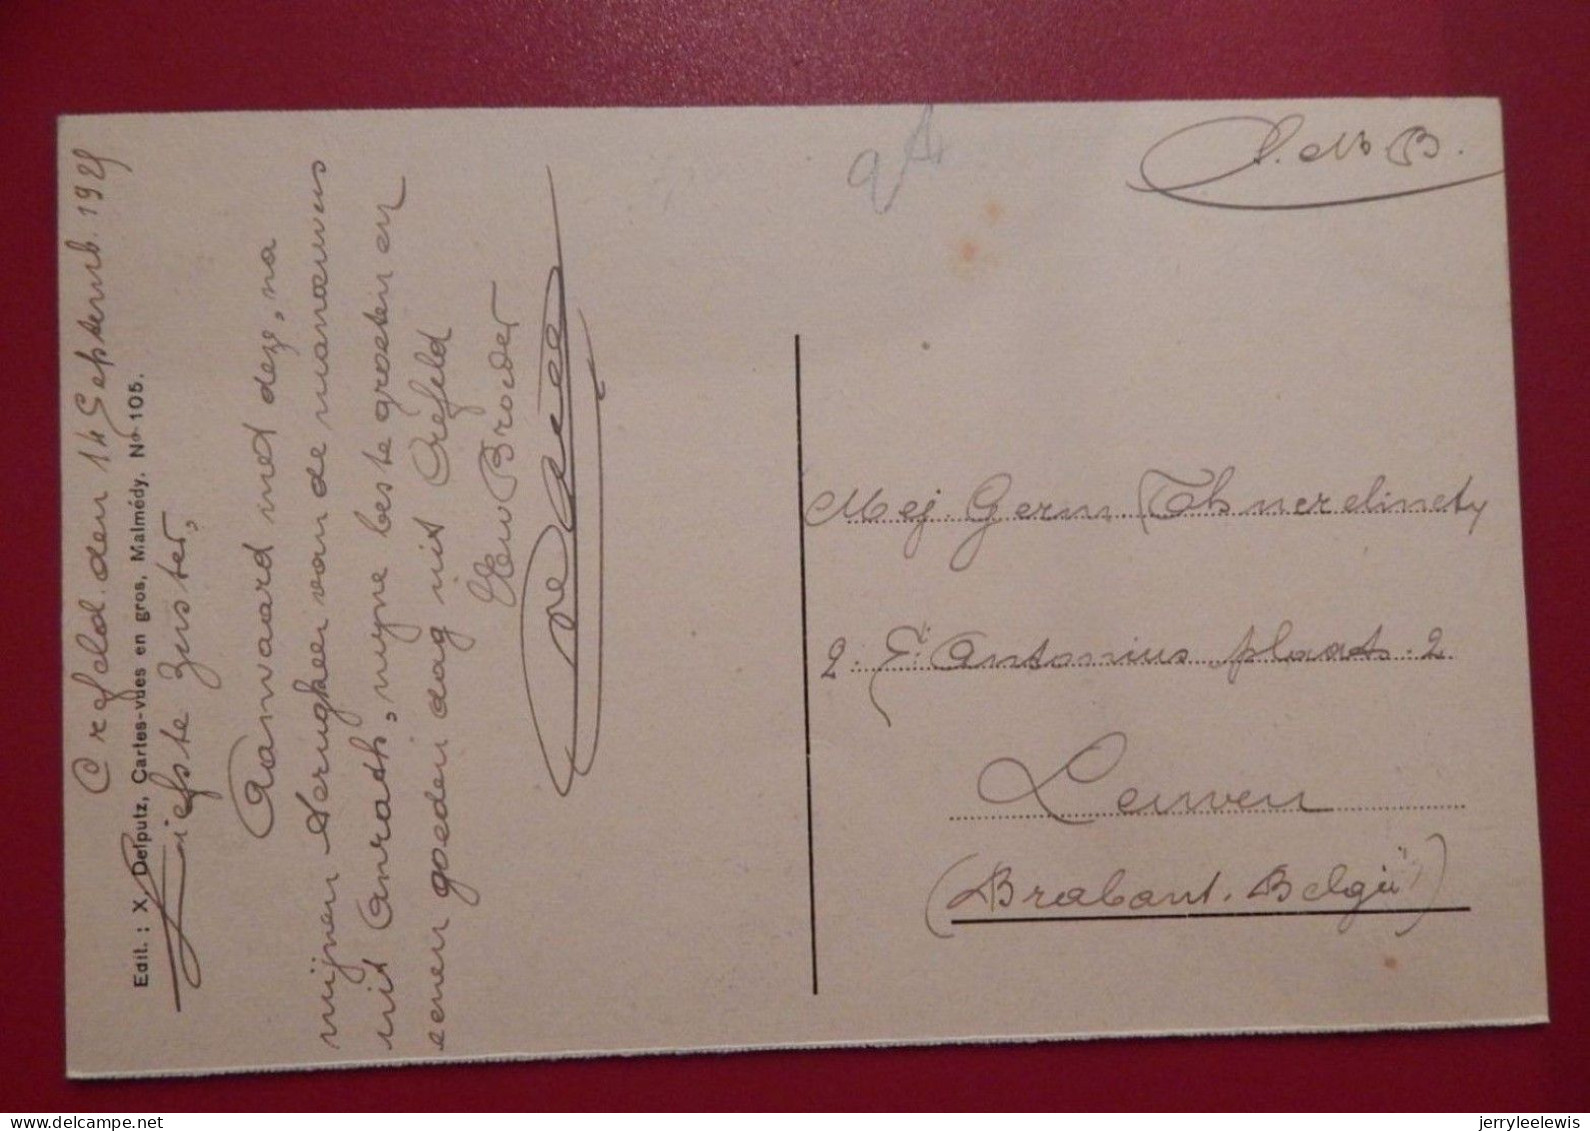 Crefeld den 14 Septemb. 192
Edit. : X. Delputz, Cartes-vues en gros, Malmédy. No 105.
Liefste Zuster,
Aanvaard met deze, na
mijnen terugkeer van de manœuvers
uit Anrath, mijne beste groeten en
eenen goeden dag uit Crefeld
Uw Broeder
S. M. B.
Mej. Germ.
2. St Antonius plaats. 2
Leuven
(Brabant. België)
jerryleelewis